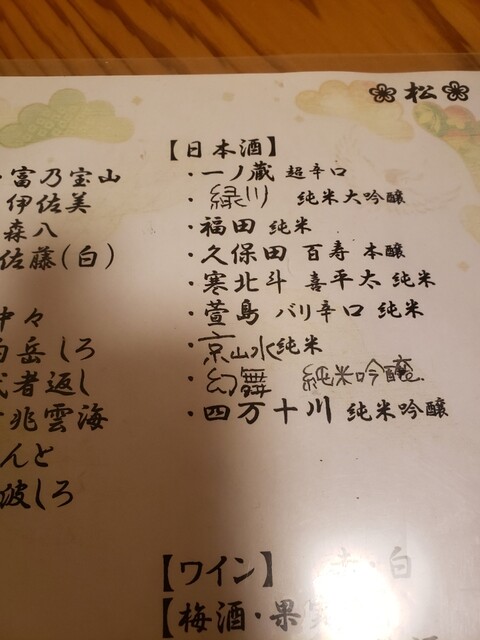 松
富乃宝山
伊佐美
森八
佐藤(白)
中々
白岳しろ
武者返し
兆雲海
んと
波しろ
【日本酒】
・一ノ蔵 超辛口
・緑川 純米大吟醸
・福田 純米
・久保田 百寿 本醸
・寒北斗 喜平太 純米
・萱島 バリ辛口 純米
・京山水純米
・幻舞 純米吟醸
・四万十川 純米吟醸
【ワイン】 赤・白
【梅酒・果実